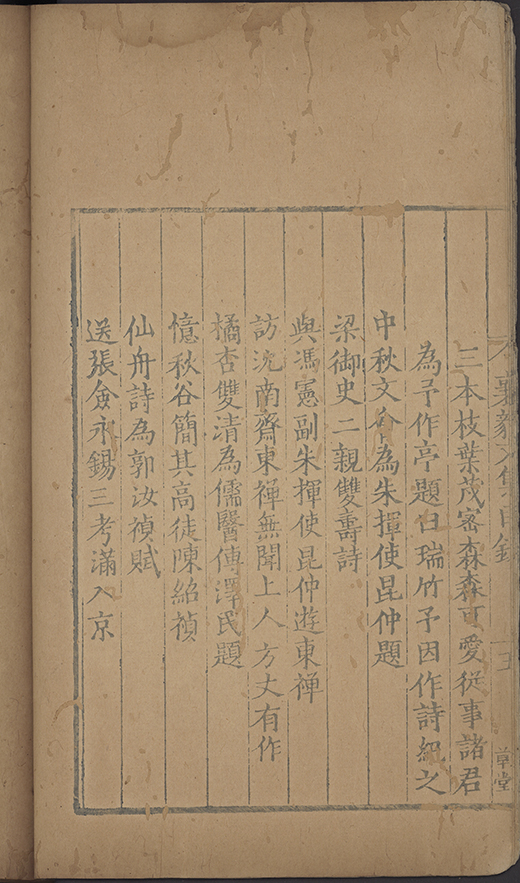 三本枝葉茂密森森可愛従事諸君
為予作亭題曰瑞竹予因作詩紀之
中秋文會為朱揮使昆仲題
梁御史二親雙壽詩
與馮憲副朱揮使昆仲遊東禪
訪沈南齋東禪無聞上人方丈有作
橘杏雙清為儒醫傅澤民題
憶秋谷簡其高徒陳紹禎
仙舟詩為郭汝禎賦
送張僉永錫三考滿入京
草堂